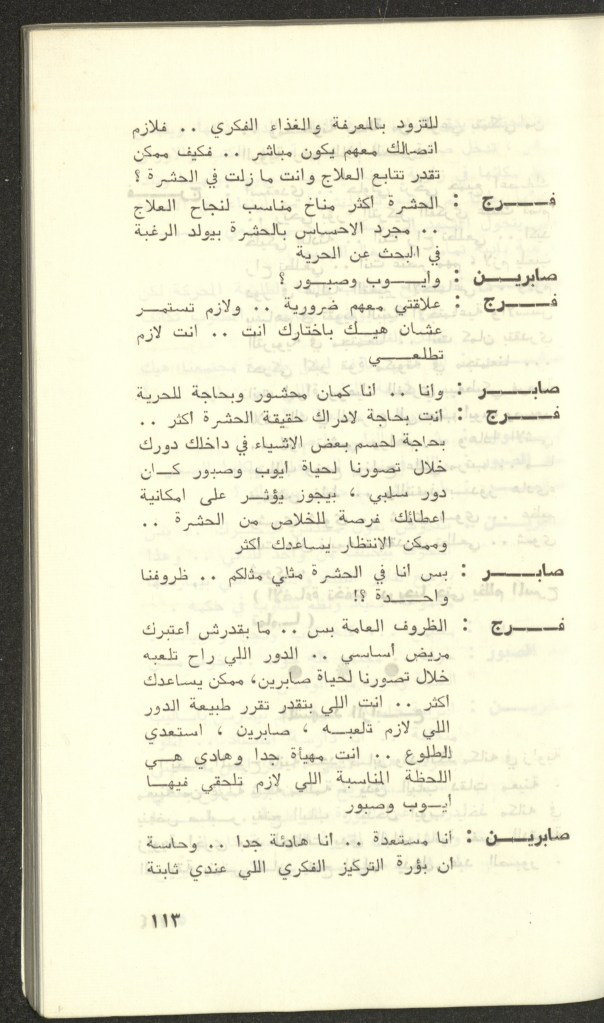 للتزود بالمعرفة والغذاء الفكري .. فلازم
اتصالك معهم يكون مباشر .. فكيف ممكن
تقدر تتابع العلاج وانت ما زلت في الحشرة ؟
فــــرج : الحشرة اكثر مناخ مناسب لنجاح العلاج
.. مجرد الاحساس بالحشرة بيولد الرغبة
في البحث عن الحرية
صابريــن : وايــوب وصبــور ؟
فــــرج : علاقتي معهم ضرورية .. ولازم تستمــر
عشان هيــك باختارك انت .. انت لازم
تطلعــــي
صابـــــر : وانا .. انا كمان محشور وبحاجة للحرية
فــــرج : انت بحاجة لادراك حقيقة الحشرة اكثر ..
بحاجة لحسم بعض الاشياء في داخلك دورك
خلال تصورنا لحياة ايوب وصبور كــان
دور سلبي ، بيجوز يؤثــر على امكانية
اعطائك فرصة للخلاص من الحشرة ..
وممكن الانتظار يساعدك اكثر
صابـــــر : بس انا في الحشرة مثلي مثلكم .. ظروفنا
واحـــدة ؟!
فــــرج : الظروف العامة بس .. ما بقدرش اعتبرك
مريض اساسي .. الدور اللي راح تلعبه
خلال تصورنا لحياة صابرين، ممكن يساعدك
اكثر .. انت اللي بتقدر تقرر طبيعة الدور
اللي لازم تلعبــه ، صابرين ، استعدي
للطلوع .. انت مهيأة جدا وهادي هــي
اللحظة المناسبة اللي لازم تلحقي فيهــا
ايــوب وصبور
صابريــن : انا مستعدة .. انا هادئة جدا .. وحاسة
ان بؤرة التركيز الفكري اللي عندي ثابتة
١١٣